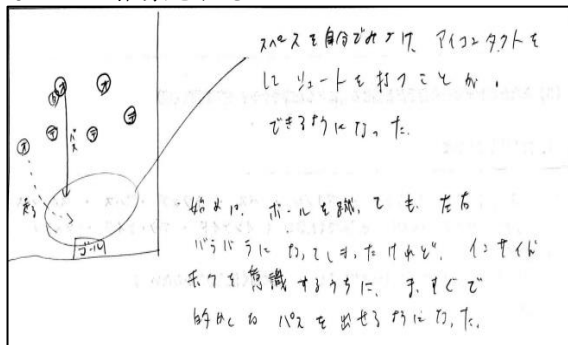 スペースを自分でみつけ、アイコンタクトを
して シュートを打つことが、
できるようになった。
オ
オ
オ
デ
デ
デ
オ
パス
走る
ゴール
始めは、ボールを蹴っても、左右
バラバラになってしまったけれど、インサイド
キックを意識するうちに、まっすぐで
的かくな パスを出せるようになった。